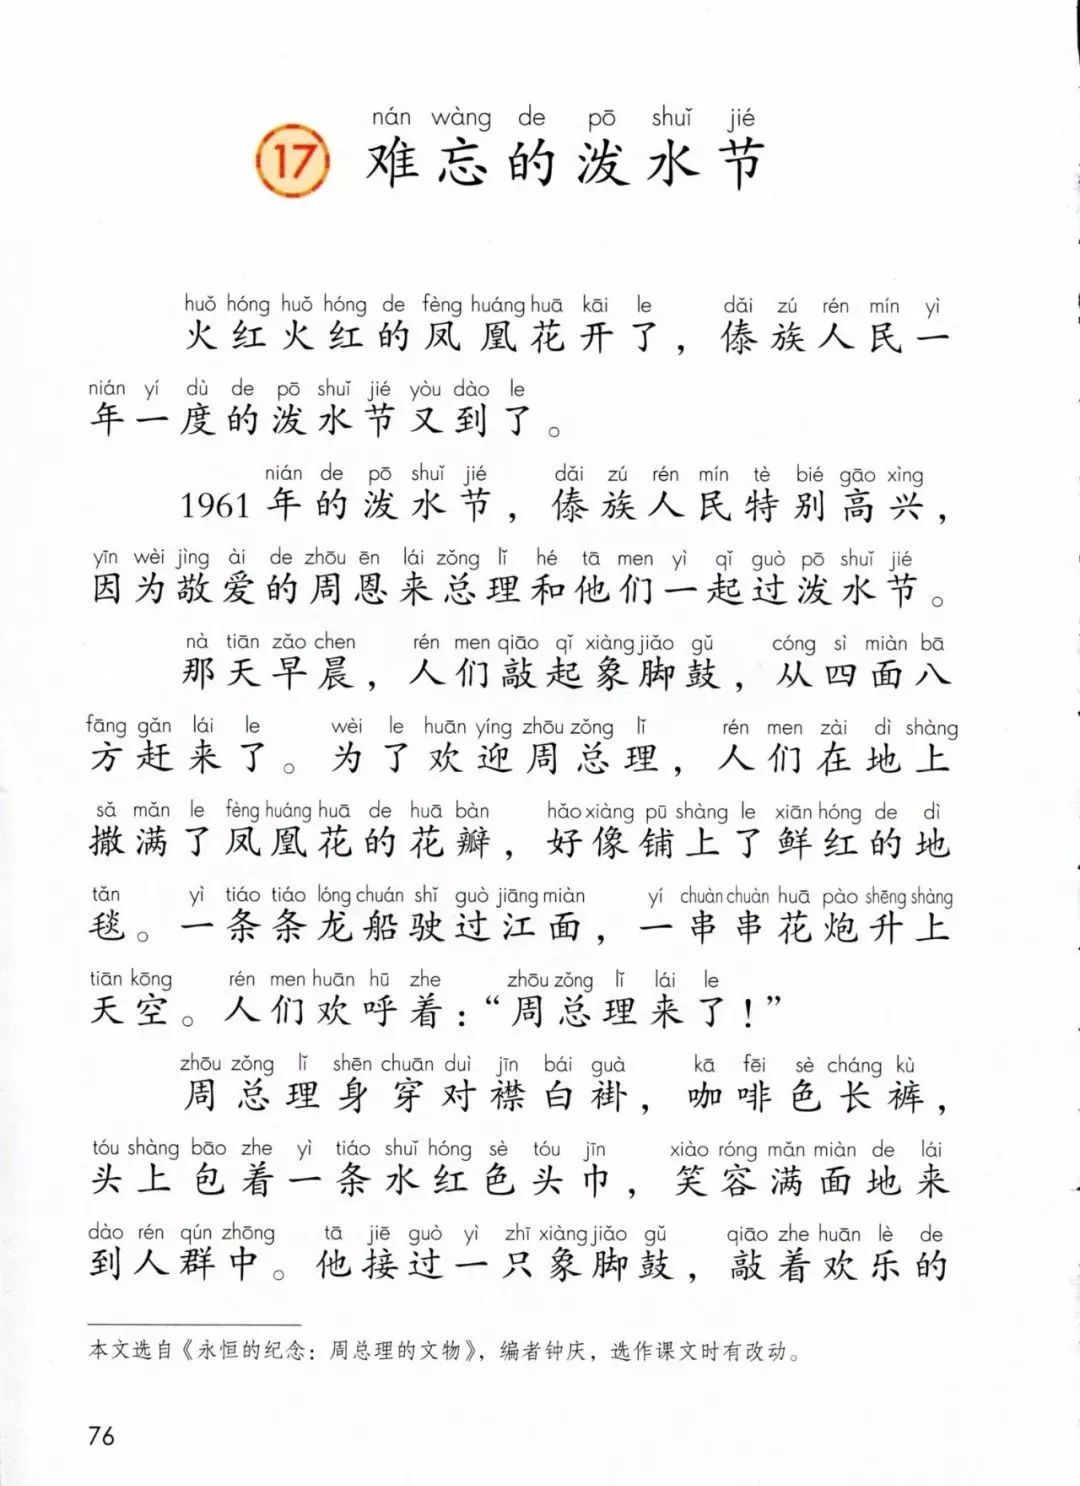 nán wàng de pō shuǐ jié
17 难忘的泼水节
huǒ hóng huǒ hóng de fèng huáng huā kāi le dǎi zú rén mín yì
火红火红的凤凰花开了，傣族人民一
nián yí dù de pō shuǐ jié yòu dào le
年一度的泼水节又到了。
nián de pō shuǐ jié dǎi zú rén mín tè bié gāo xìng
1961年的泼水节，傣族人民特别高兴，
yīn wèi jìng ài de zhōu ēn lái zǒng lǐ hé tā men yì qǐ guò pō shuǐ jié
因为敬爱的周恩来总理和他们一起过泼水节。
nà tiān zǎo chen rén men qiāo qǐ xiàng jiǎo gǔ cóng sì miàn bā
那天早晨，人们敲起象脚鼓，从四面八
fāng gǎn lái le wèi le huān yíng zhōu zǒng lǐ rén men zài dì shàng
方赶来了。为了欢迎周总理，人们在地上
sǎ mǎn le fèng huáng huā de huā bàn hǎo xiàng pū shàng le xiān hóng de dì
撒满了凤凰花的花瓣，好像铺上了鲜红的地
tǎn yì tiáo tiáo lóng chuán shǐ guò jiāng miàn yí chuàn chuàn huā pào shēng shàng
毯。一条条龙船驶过江面，一串串花炮升上
tiān kōng rén men huān hū zhe zhōu zǒng lǐ lái le
天空。人们欢呼着：“周总理来了！”
zhōu zǒng lǐ shēn chuān duì jīn bái guà kā fēi sè cháng kù
周总理身穿对襟白褂，咖啡色长裤，
tóu shàng bāo zhe yì tiáo shuǐ hóng sè tóu jīn xiào róng mǎn miàn de lái
头上包着一条水红色头巾，笑容满面地来
dào rén qún zhōng tā jiē guò yì zhī xiàng jiǎo gǔ qiāo zhe huān lè de
到人群中。他接过一只象脚鼓，敲着欢乐的
本文选自《永恒的纪念：周总理的文物》，编者钟庆，选作课文时有改动。
76